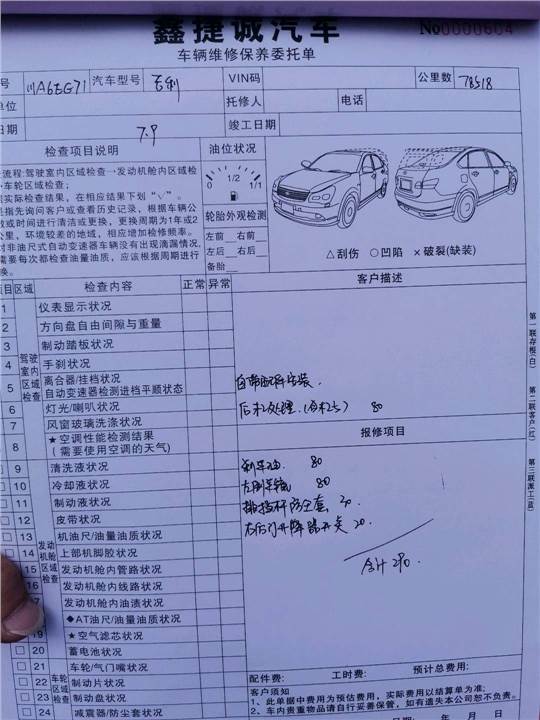 鑫捷诚汽车
No0000604
车辆维修保养委托单
号 川A6EG71 汽车型号 吉利 VIN码 公里数 78518
单位 托修人 电话
日期 7.9 竣工日期
检查项目说明 油位状况
流程:驾驶室内区域检查→发动机舱内区域检
车轮区域检查;
实际检查结果，在相应结果下划“√”。
是指先询问客户或查看历史记录，根据车辆公
数或时间进行清洁或更换，更换周期为1年或2
公里，环境较差的地域，相应增加检修频率。
对非油尺式自动变速器车辆没有出现滴漏情况,
需要每次都检查油量油质，应该根据周期进行
换。
0 1/2 1/1
轮胎外观检测
左前 右前
左后 右后
备胎
△刮伤 ○凹陷 ×破裂(缺装)
项目 区域 检查内容 正常 异常 客户描述
驾驶室内区域检查
1 仪表显示状况
2 方向盘自由间隙与重量
3 制动踏板状况
4 手刹状况
5 离合器/挂档状况
自动变速器检测进档平顺状态
6 灯光/喇叭状况
7 风窗玻璃洗涤状况
8 ★空调性能检测结果
(需要使用空调的天气)
自带配件安装.
80
报修项目
发动机舱区域检查
9 清洗液状况
10 冷却液状况
11 制动液状况
12 皮带状况
13 机油尺/油量油质状况
14 上部机脚胶状况
15 发动机舱内管路状况
16 发动机舱内线路状况
17 发动机舱内油渍状况
◆AT油尺/油量油质状况
19 ★空气滤芯状况
20 蓄电池状况
车轮区域检查
21 车轮/气门嘴状况
22 制动片状况
23 制动盘状况
24 减震器/防尘套状况
刹车油 80
80
30
右后门升降器开关 20
合计290.
配件费: 工时费: 预计总费用:
客户须知
1、此单据中费用为预估费用，实际费用以结算单为准;
2、车内贵重物品请自行妥善保管，如有遗失本公司恕不负责.
年 月 日
第一联存根(白)
第二联客户(红)
第三联派工(蓝)